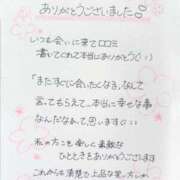 ありがとうございました
いつも会いに来て口コミ
書いてくれて本当にありがとう(^^)
「またすぐに会いたくなる」なんて
言ってもらえて、本当に幸せな事
なんだなぁって思います(^^)
私の方こそ楽しく素敵な
ひとときをありがとうございます
これからも清楚で上品な笑い方が